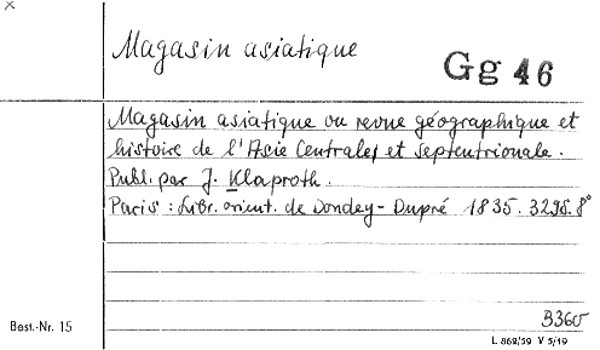 x
Magasin asiatique
Gg 46
Magasin asiatique ou revue géographique et
histoire de l'Asie Centrale, et septentrionale.
Publ. par J. Klaproth.
Paris: Libr. orient. de Dondey-Dupré 1835. 329S. 8°
B360
Best.-Nr. 15
L 868/59 V 5/19